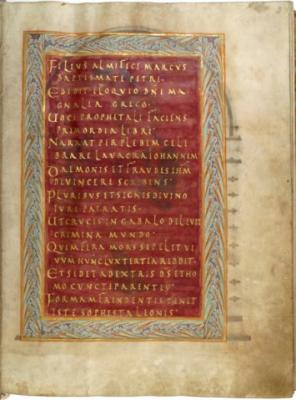 FILIUS ALMIFICI MARCUS
BAPTISMATE PETRI
EDIDIT ELOQUIO DNI MA
GNALIA GRECO
UOCE PROPHETALI FACIENS
PRIMORDIA LIBRI
NARRAT PER PLEBEM CELE
BRARE LAUACRA IOHANNEM
DAEMONIS ET FRAUDES IHM
DEUINCERE SCRIBENS
PLURIBUS ET SIGNIS DIUINO
IURE PATRATIS
UT CRUCIS IN GABALO DILUIT
CRIMINA MUNDO
QUEM FERA MORS SEPELIT UI
UUM HUNC LUX TERTIA REDDIT
ET SEDET A DEXTRIS DS ET HO
MO CUNCTIPARENTEIS
FORMAM
ISTE SOPHISTA LEONIS